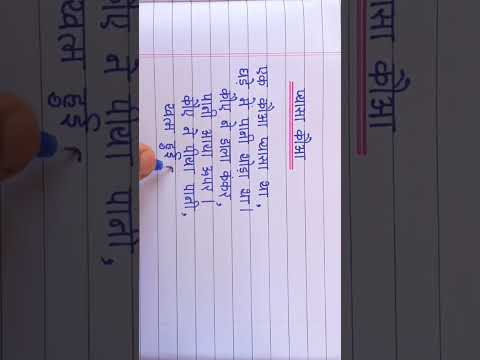 प्यासा कौआ
एक कौआ प्यासा था,
घड़े में पानी थोड़ा था।
कौए ने डाला कंकर,
पानी आया ऊपर।
कौए ने पीया पानी,
खत्म हुई